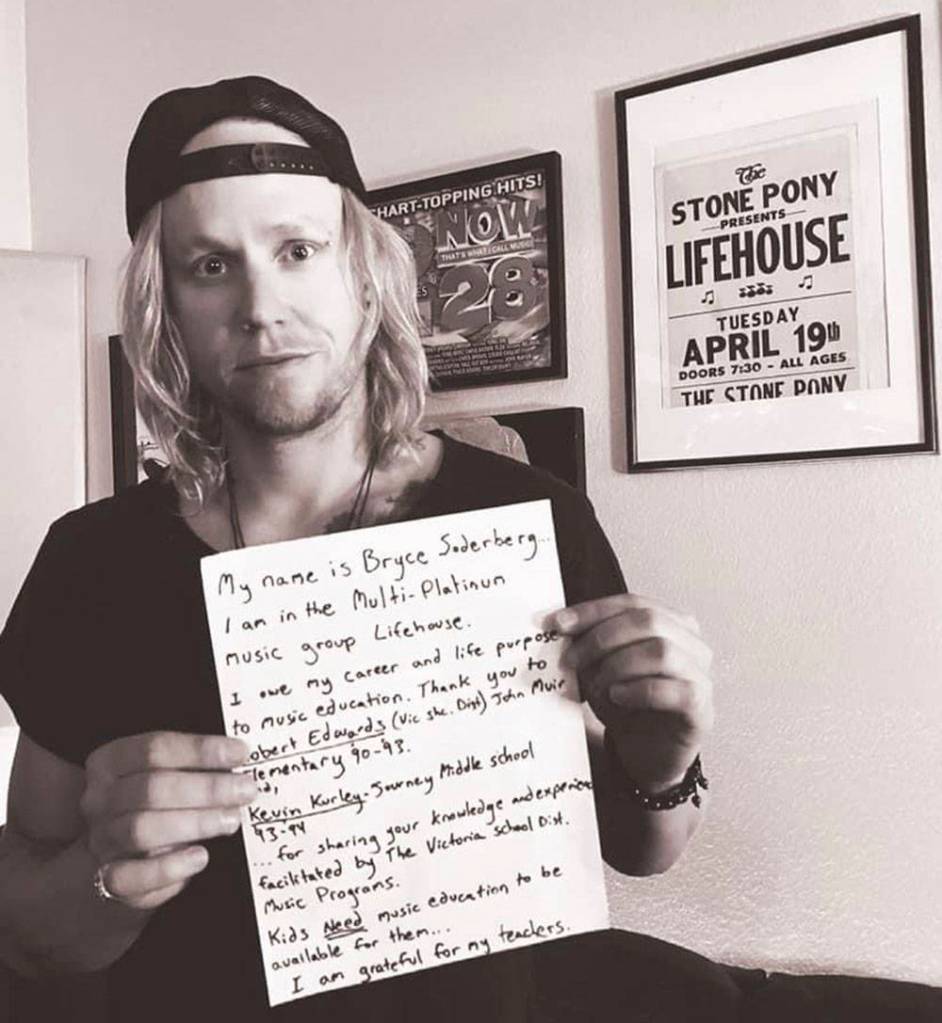 CHART-TOPPING HITS!
NOW
THAT'S WHAT I CALL MUSIC!
28
The
STONE PONY
PRESENTS
LIFEHOUSE
TUESDAY
APRIL 19th
DOORS 7:30 - ALL AGES
THE STONE PONY
My name is Bryce Soderberg...
I am in the Multi-Platinun
music group Lifehouse.
I owe my career and life purpose
to music education. Thank you to
obert Edwards (Vic shc. Dist) John Muir
lementary '90-'93.
nd,
Kevin Kurley - Journey Middle school
93-94
... for sharing your knowledge and experience
facilitated by The Victoria School Dist.
Music Programs.
Kids Need music education to be
available for them...
I am grateful for my teachers.